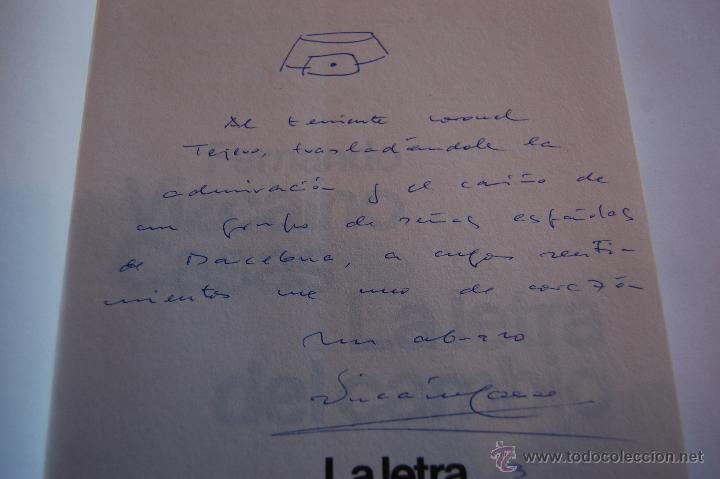 Al teniente coronel
Tejero, trasladándole la
admiración y el cariño de
un grupo de señas españolas
de Barcelona, a cuyos senti-
mientos me uno de corazón
Un abrazo
La letra
www.todocoleccion.net